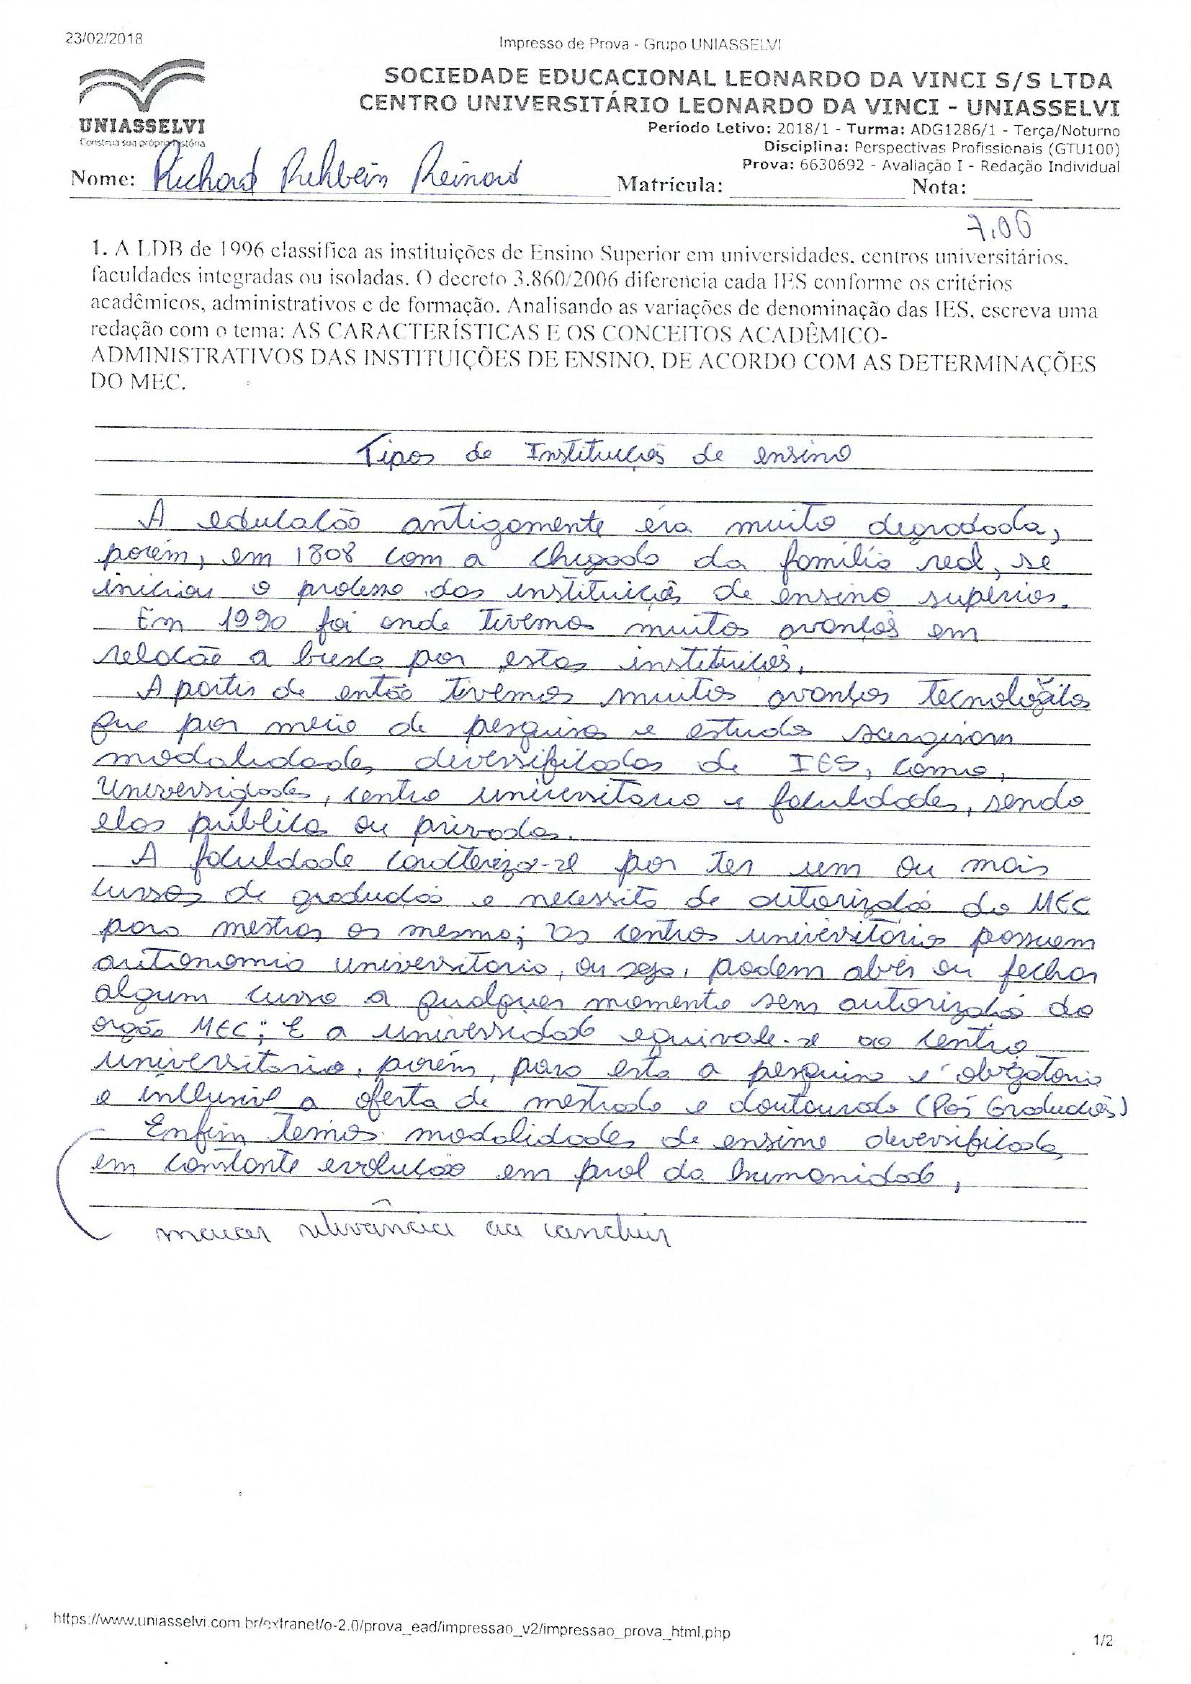 23/02/2018
Impresso de Prova - Grupo UNIASSELVI
UNIASSELVI
Construa sua própria história
SOCIEDADE EDUCACIONAL LEONARDO DA VINCI S/S LTDA
CENTRO UNIVERSITÁRIO LEONARDO DA VINCI - UNIASSELVI
Período Letivo: 2018/1 - Turma: ADG1286/1 - Terça/Noturno
Disciplina: Perspectivas Profissionais (GTU100)
Prova: 6630692 - Avaliação I - Redação Individual
Nome: Richard Rehbein Reinard Matrícula: Nota:
7.06
1. A LDB de 1996 classifica as instituições de Ensino Superior em universidades, centros universitários,
faculdades integradas ou isoladas. O decreto 3.860/2006 diferencia cada IES conforme os critérios
acadêmicos, administrativos e de formação. Analisando as variações de denominação das IES, escreva uma
redação com o tema: AS CARACTERÍSTICAS E OS CONCEITOS ACADÊMICO-
ADMINISTRATIVOS DAS INSTITUIÇÕES DE ENSINO, DE ACORDO COM AS DETERMINAÇÕES
DO MEC.
Tipos de Instituição de ensino
A educação antigamente era muito degradada,
porém, em 1808 com a chegada da família real, se
iniciou o processo das instituição de ensino superios.
Em 1990 foi onde tivemos muitos avanços em
relação a busca por estas instituições.
A partir de então tivemos muitos avanços tecnologicos
que por meio de pesquisa e estudo surgiram
modalidades deversificadas de IES, como,
Universidades, centro universitario e faculdades, sendo
elas pública ou privada.
A faculdade caracteriza-se por ter um ou mais
cursos de graduação e necessita de autorização do MEC
para mestrar os mesmo; Os centros universitários possuem
autonomia universitaria, ou seja, podem abrir ou fechar
algum curso a qualquer momento sem autorização do
orgão MEC; E a universidade equivale-se ao centro
universitario, porém, para esta a pesquisa é obrigatoria
e inclusive a oferta de mestrado e doutourado (Pós Graduação)
Enfim temos modalidades de ensino deversificada
em constante evolução em prol da humanidade,
maior relevância ao concluir
https://www.uniasselvi.com.br/extranet/o-2.0/prova_ead/impressao_v2/impressao_prova_html.php
1/2